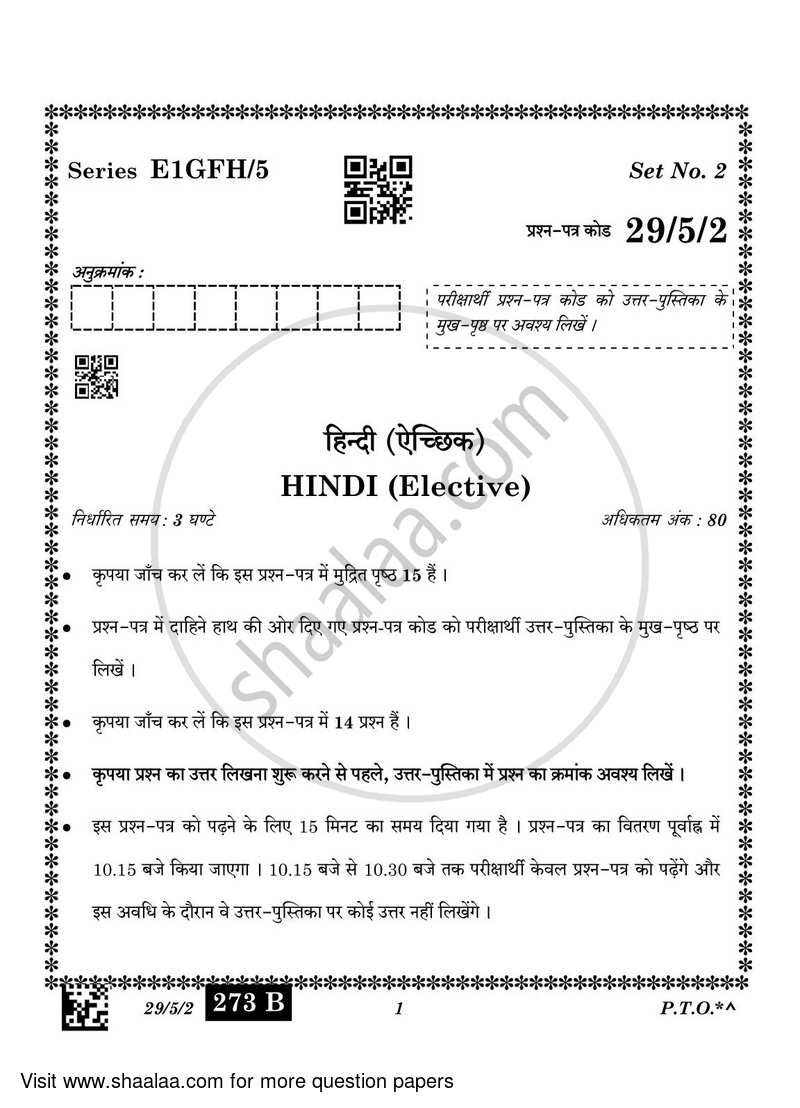 Series E1GFH/5
Set No. 2
प्रश्न-पत्र कोड 29/5/2
अनुक्रमांक :
परीक्षार्थी प्रश्न-पत्र कोड को उत्तर-पुस्तिका के
मुख-पृष्ठ पर अवश्य लिखें ।
हिन्दी (ऐच्छिक)
HINDI (Elective)
निर्धारित समय : 3 घण्टे
अधिकतम अंक : 80
• कृपया जाँच कर लें कि इस प्रश्न-पत्र में मुद्रित पृष्ठ 15 हैं ।
• प्रश्न-पत्र में दाहिने हाथ की ओर दिए गए प्रश्न-पत्र कोड को परीक्षार्थी उत्तर-पुस्तिका के मुख-पृष्ठ पर
लिखें ।
• कृपया जाँच कर लें कि इस प्रश्न-पत्र में 14 प्रश्न हैं ।
• कृपया प्रश्न का उत्तर लिखना शुरू करने से पहले, उत्तर-पुस्तिका में प्रश्न का क्रमांक अवश्य लिखें ।
• इस प्रश्न-पत्र को पढ़ने के लिए 15 मिनट का समय दिया गया है । प्रश्न-पत्र का वितरण पूर्वाह्न में
10.15 बजे किया जाएगा । 10.15 बजे से 10.30 बजे तक परीक्षार्थी केवल प्रश्न-पत्र को पढ़ेंगे और
इस अवधि के दौरान वे उत्तर-पुस्तिका पर कोई उत्तर नहीं लिखेंगे ।
shaalaa.com
29/5/2 273 B 1 P.T.O.*^
Visit www.shaalaa.com for more question papers